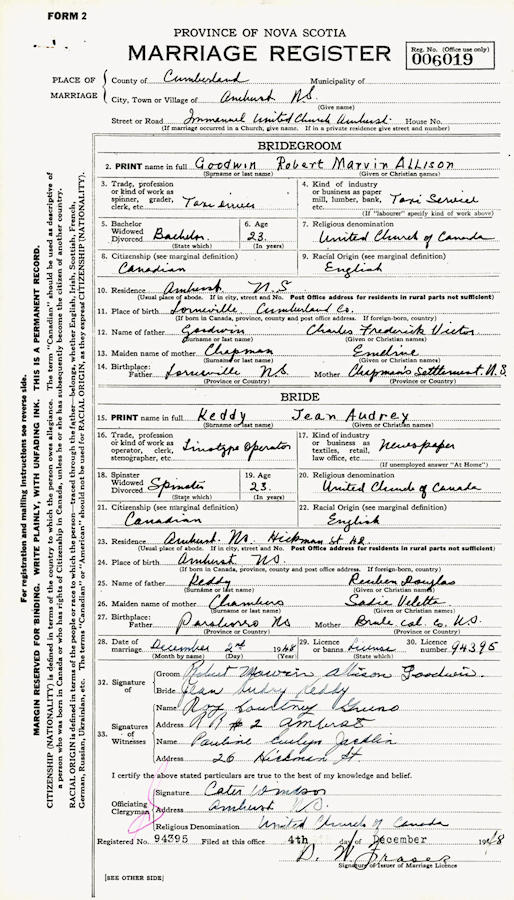 FORM 2
PROVINCE OF NOVA SCOTIA
MARRIAGE REGISTER
Reg. No. (Office use only)
006019
PLACE OF MARRIAGE
County of Cumberland Municipality of
City, Town or Village of Amherst N.S.
(Give name)
Street or Road Immanuel United Church Amherst. House No.
(If marriage occurred in a Church, give name. If in a private residence give street and number)
BRIDEGROOM
2. PRINT name in full Goodwin Robert Marvin Allison
(Surname or last name) (Given or Christian names)
3. Trade, profession or kind of work as spinner, grader, clerk, etc. Taxi driver
4. Kind of industry or business as paper mill, lumber, bank, etc. Taxi Service
(If "labourer" specify kind of work above)
5. Bachelor Widowed Divorced Bachelor
(State which)
6. Age 23.
(In years)
7. Religious denomination
United Church of Canada
8. Citizenship (see marginal definition)
Canadian
9. Racial Origin (see marginal definition)
English
10. Residence Amherst N.S
(Usual place of abode. If in city, street and No. Post Office address for residents in rural parts not sufficient)
11. Place of birth Lorneville, Cumberland Co.
(If born in Canada, province, county and post office address. If foreign-born, country)
12. Name of father Goodwin Charles Frederick Victor
(Surname or last name) (Given or Christian names)
13. Maiden name of mother Chapman Emeline
(Surname or last name) (Given or Christian names)
14. Birthplace: Father Lorneville N.S. Mother Chapman's Settlement. N.S.
(Province or Country) (Province or Country)
BRIDE
15. PRINT name in full Keddy Jean Audrey
(Surname or last name) (Given or Christian names)
16. Trade, profession or kind of work as operator, clerk, stenographer, etc. Linotype Operator
17. Kind of industry or business as textiles, retail, law office, etc. Newspaper
(If unemployed answer "At Home")
18. Spinster Widowed Divorced Spinster
(State which)
19. Age 23.
(In years)
20. Religious denomination
United Church of Canada
21. Citizenship (see marginal definition)
Canadian
22. Racial Origin (see marginal definition)
English
23. Residence Amherst. Ns. Hickman St
(Usual place of abode. If in city, street and No. Post Office address for residents in rural parts not sufficient)
24. Place of birth Amherst NS.
(If born in Canada, province, county and post office address. If foreign-born, country)
25. Name of father Keddy Reuben Douglas
(Surname or last name) (Given or Christian names)
26. Maiden name of mother Chambers Sadie Velette
(Surname or last name) (Given or Christian names)
27. Birthplace: Father Parsboro Ns Mother Brule, Col. Co. N.S.
(Province or Country) (Province or Country)
28. Date of marriage. December 2nd 1948
(Month by name) (Day) (Year)
29. Licence or banns License
(State which)
30. Licence number. 94395
32. Signature of
Groom Robert Marvin Allison Goodwin.
Bride Jean Audry Keddy
33. Signatures of Witnesses
Name Roy Courtney
Address RR #2 Amherst
Name Pauline Evelyn Jacklin
Address 26 Hickman St.
I certify the above stated particulars are true to the best of my knowledge and belief.
Officiating Clergyman
Signature Cater Windsor
Address Amherst N.S.
Religious Denomination United Church of Canada
Registered No. 94395 Filed at this office 4th day of December 1948
D. W. Fraser
Signature of Issuer of Marriage Licence
[SEE OTHER SIDE]
For registration and mailing instructions see reverse side.
MARGIN RESERVED FOR BINDING. WRITE PLAINLY, WITH UNFADING INK. THIS IS A PERMANENT RECORD.
CITIZENSHIP (NATIONALITY) is defined in terms of the country to which the person owes allegiance. The term "Canadian" should be used as descriptive of
a person who was born in Canada or who has rights of Citizenship in Canada, unless he or she has subsequently become the citizen of another country.
RACIAL ORIGIN is defined in terms of the people or race to which the person—traced through the father—belongs, whether English, Irish, Scottish, French,
German, Russian, Ukrainian, etc. The terms "Canadian" or "American" should not be used for RACIAL ORIGIN, as they express CITIZENSHIP (NATIONALITY).